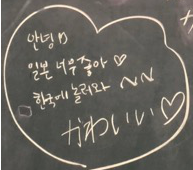 안녕
일본 너무 좋아 ♡
한국에 놀러와 ~~
かわいい ♡